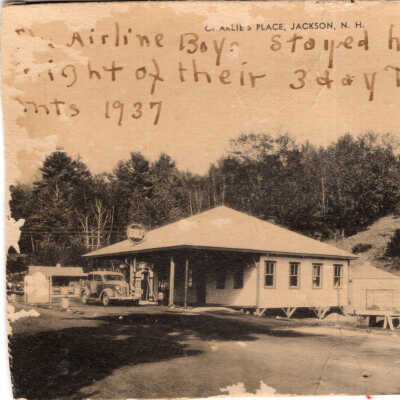 CHARLIE'S PLACE, JACKSON, N. H.
The Airline Boys Stayed
night of their 3 day
1937